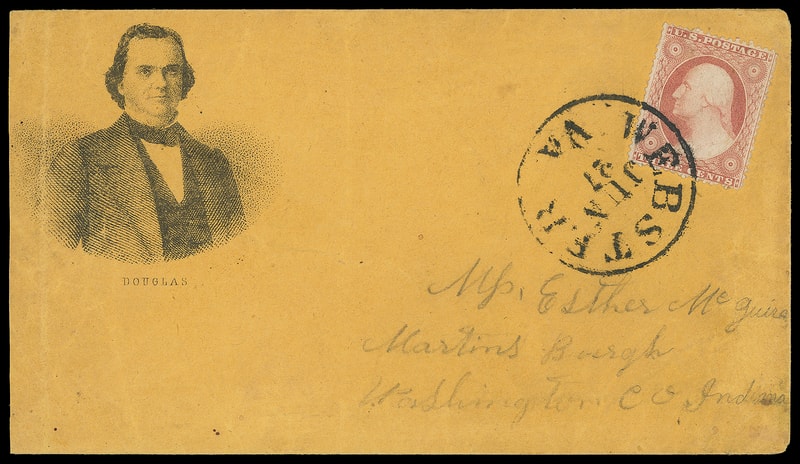 DOUGLAS
U.S. POSTAGE
THREE CENTS
WEBSTER VA
JUN
Esther Mc Guire
Martins Burgh
Washington CO Indiana